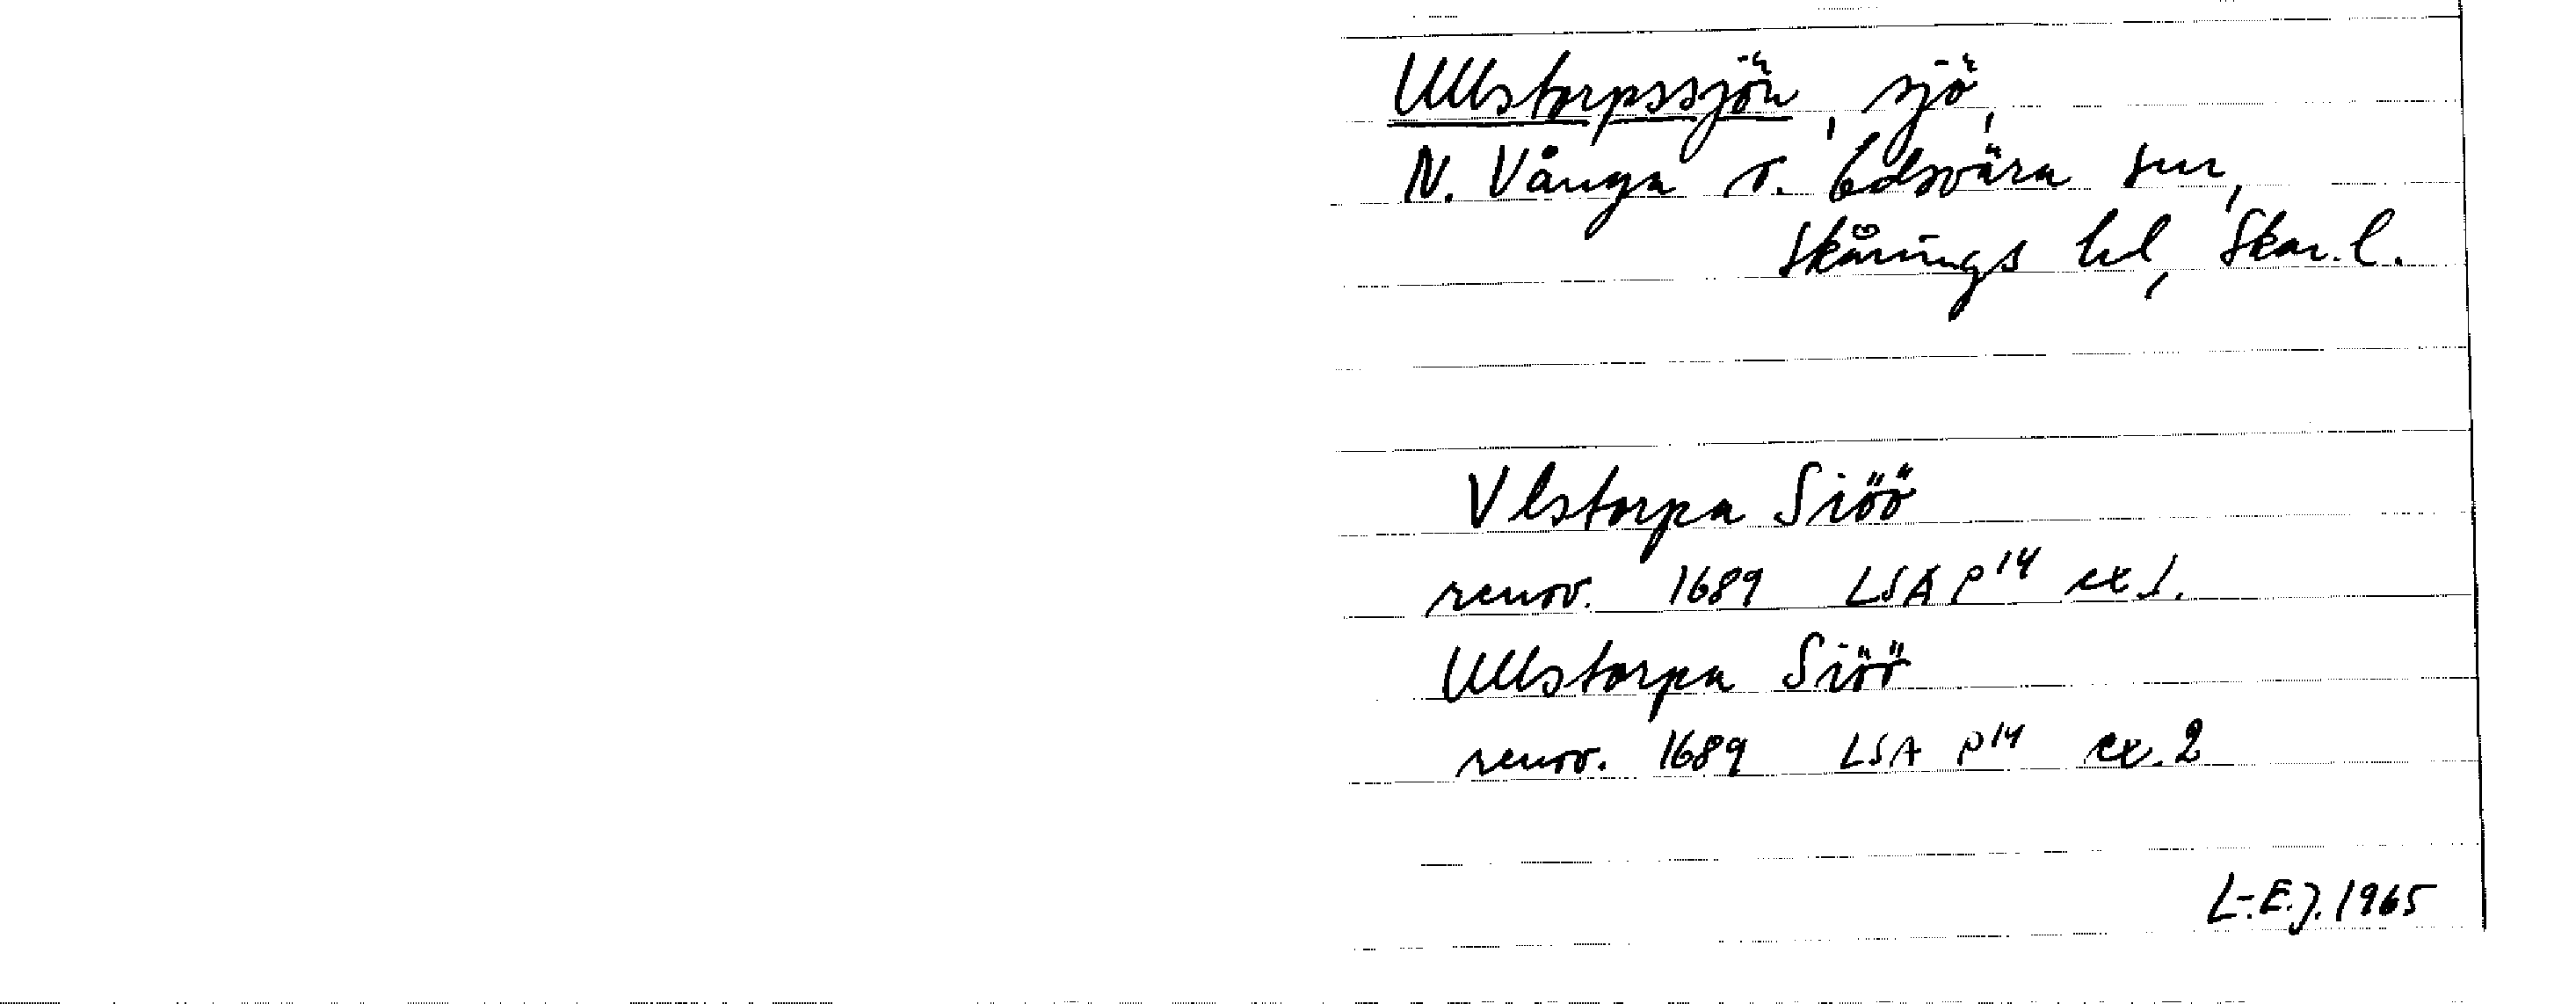 Ullstorpssjön, sjö,
N. Vånga o. Edsvära snr,
Skånings hd, Skar. l.
Vlstorpa Siöö
renov. 1689 LSA P14 ex 1.
Ullstorpa Siöö
renov. 1689 LSA P14 ex. 2
L-E.J. 1965